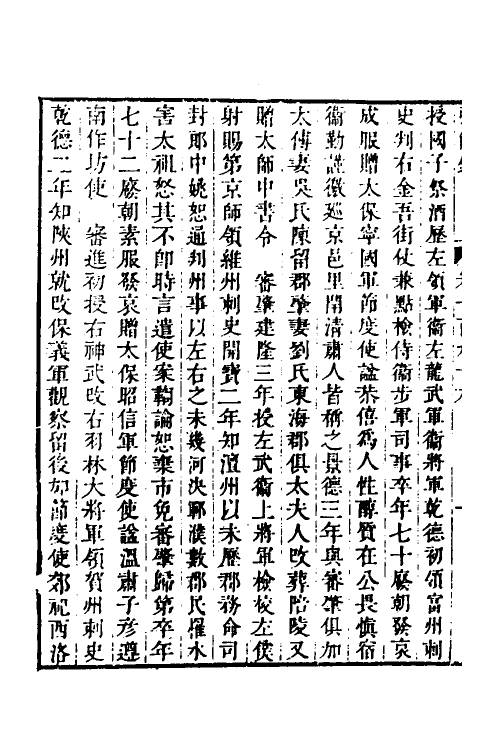 授國子祭酒歷左領軍衞左龍武軍衞將軍乾德初領富州刺
史判右金吾街仗兼點檢侍衞步軍司事卒年七十廢朝發哀
成服贈太保寧國軍節度使諡恭僖為人性醇質在公畏慎宿
衞勤謹徼廵京邑里閈清肅人皆稱之景德三年與審肇俱加
太傅妻吳氏陳留郡肇妻劉氏東海郡俱太夫人改葬陪陵又
贈太師中書令　審肇建隆三年授左武衞上將軍檢校左僕
射賜第京師領維州刺史開寶二年知澶州以未歷郡務命司
封郎中姚恕通判州事以左右之未幾河決鄆濮數郡民罹水
害太祖怒其不即時言遣使案鞫論恕棄市免審肇歸第卒年
七十二廢朝素服發哀贈太保昭信軍節度使諡溫肅子彥遵
南作坊使　審進初授右神武改右羽林大將軍領賀州刺史
乾德二年知陝州就改保義軍觀察留後加節度使郊祀西洛